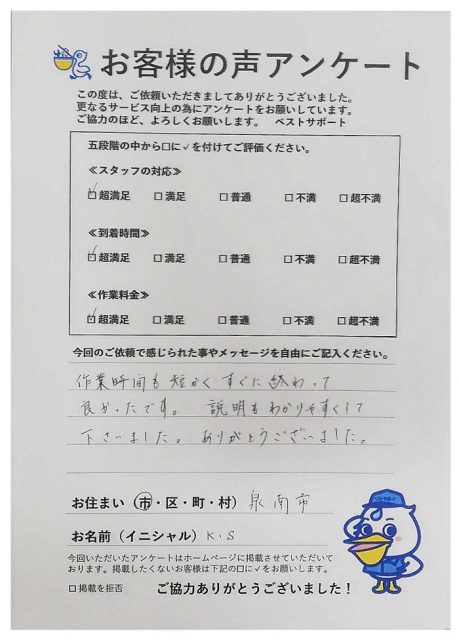 お客様の声アンケート
この度は、ご依頼いただきましてありがとうございました。
更なるサービス向上の為にアンケートをお願いしています。
ご協力のほど、よろしくお願いします。 ベストサポート
五段階の中から☐に✓を付けてご評価ください。
≪スタッフの対応≫
☑超満足 ☐満足 ☐普通 ☐不満 ☐超不満
≪到着時間≫
☑超満足 ☐満足 ☐普通 ☐不満 ☐超不満
≪作業料金≫
☑超満足 ☐満足 ☐普通 ☐不満 ☐超不満
今回のご依頼で感じられた事やメッセージを自由にご記入ください。
作業時間も短かくすぐに終わって
良かったです。 説明もわかりやすくして
下さいました。ありがとうございました。
お住まい（市・区・町・村） 泉南市
お名前（イニシャル） K.S
今回いただいたアンケートはホームページに掲載させていただいて
おります。掲載したくないお客様は下記の☐に✓をお願いします。
☐掲載を拒否 ご協力ありがとうございました！